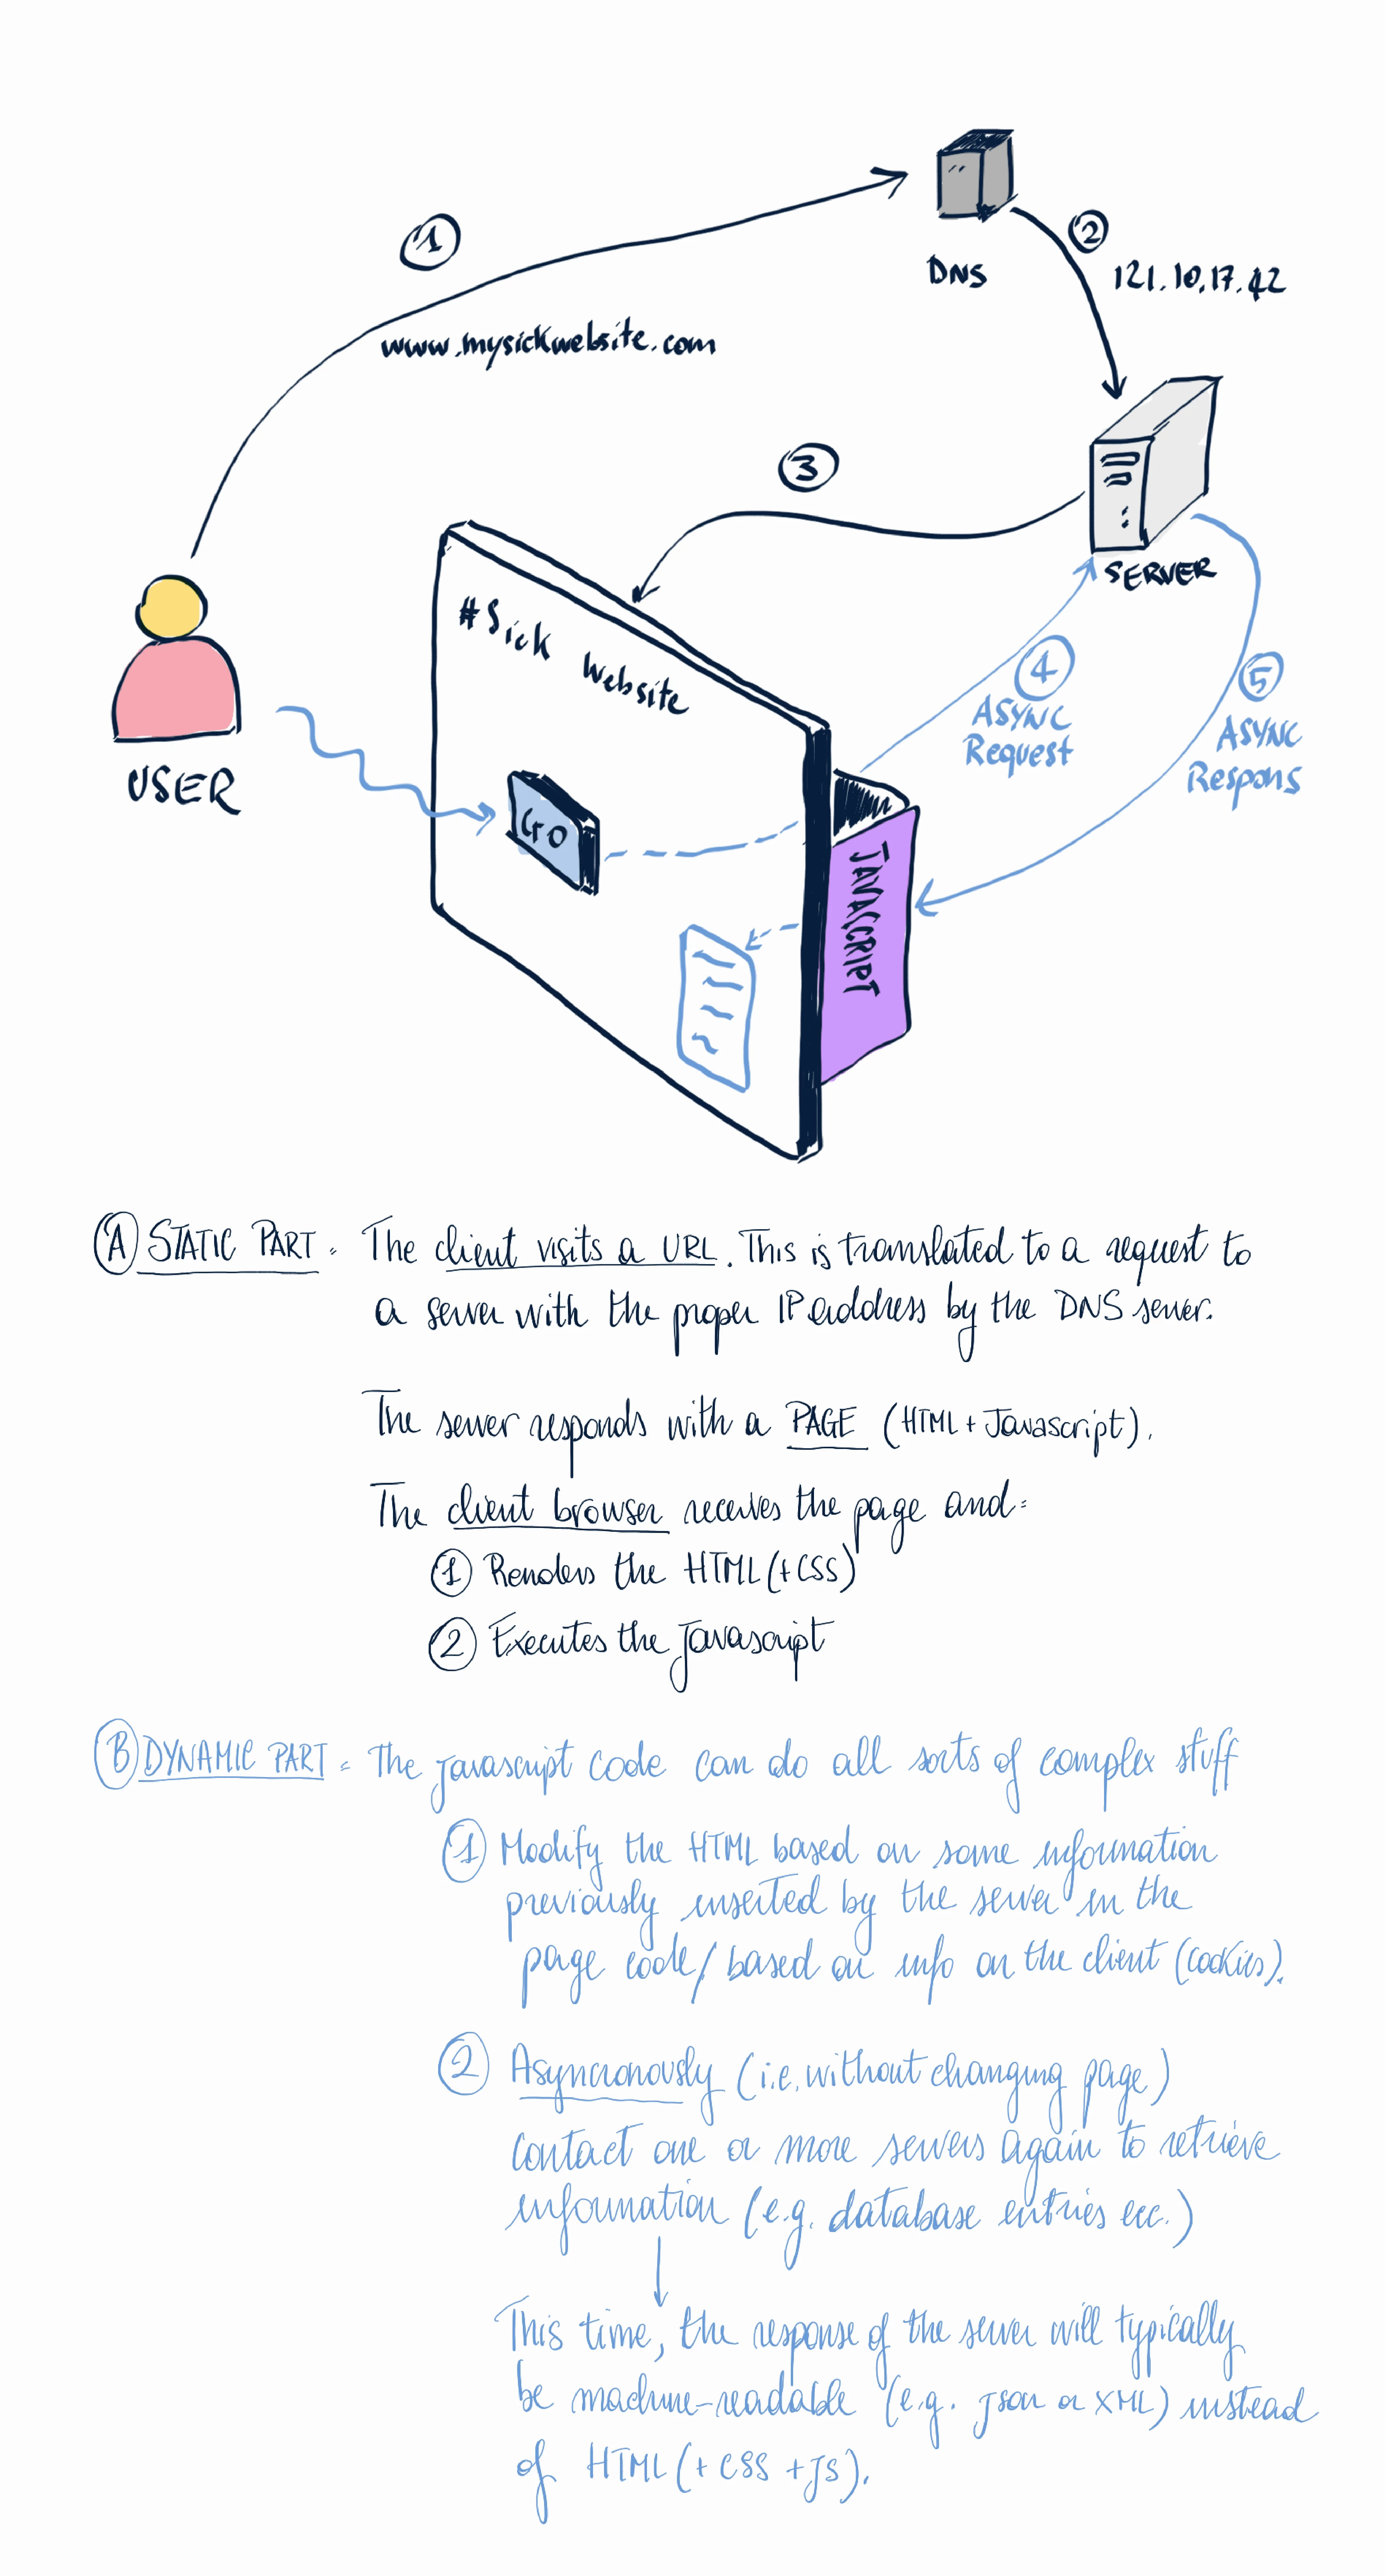 1
www.mysickwebsite.com
DNS
2
121.10.17.42
3
SERVER
#Sick Website
USER
GO
4
ASYNC
Request
5
ASYNC
Respons
JAVASCRIPT
A STATIC PART: The client visits a URL. This is translated to a request to
a server with the proper IP address by the DNS server.
The server responds with a PAGE (HTML + Javascript).
The client browser receives the page and:
1 Renders the HTML (+CSS)
2 Executes the Javascript
B DYNAMIC PART: The Javascript code can do all sorts of complex stuff
1 Modify the HTML based on some information
previously inserted by the server in the
page code/based on info on the client (cookies).
2 Asyncronously (i.e. without changing page)
contact one or more servers again to retrieve
information (e.g. database entries ecc.)
This time, the response of the server will typically
be machine-readable (e.g. Json or XML) instead
of HTML (+ CSS + JS).